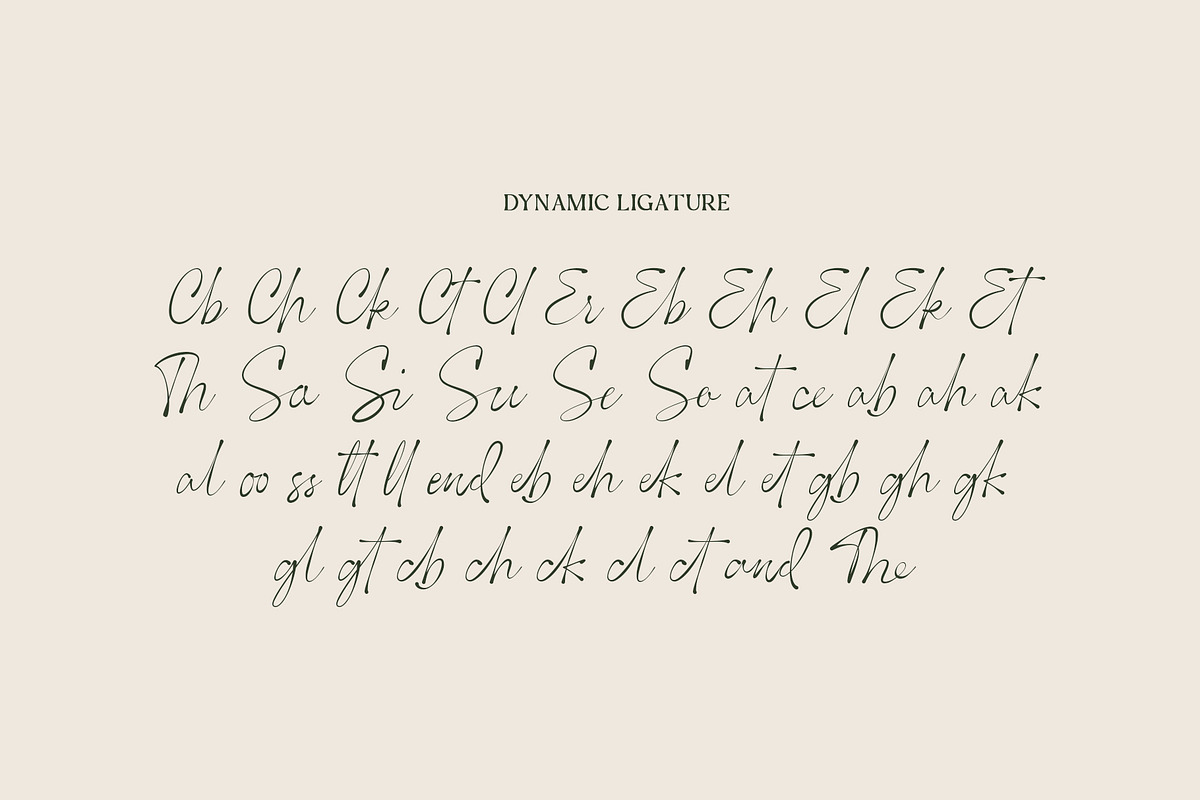 DYNAMIC LIGATURE
Cb Ch Ck Ct Cl Er Eb Eh El Ek Et
Th Sa Si Su Se So at ce ab ah ak
al oo ss tt ll end eb eh ek el et gb gh gk
gl gt cb ch ck cl ct and The